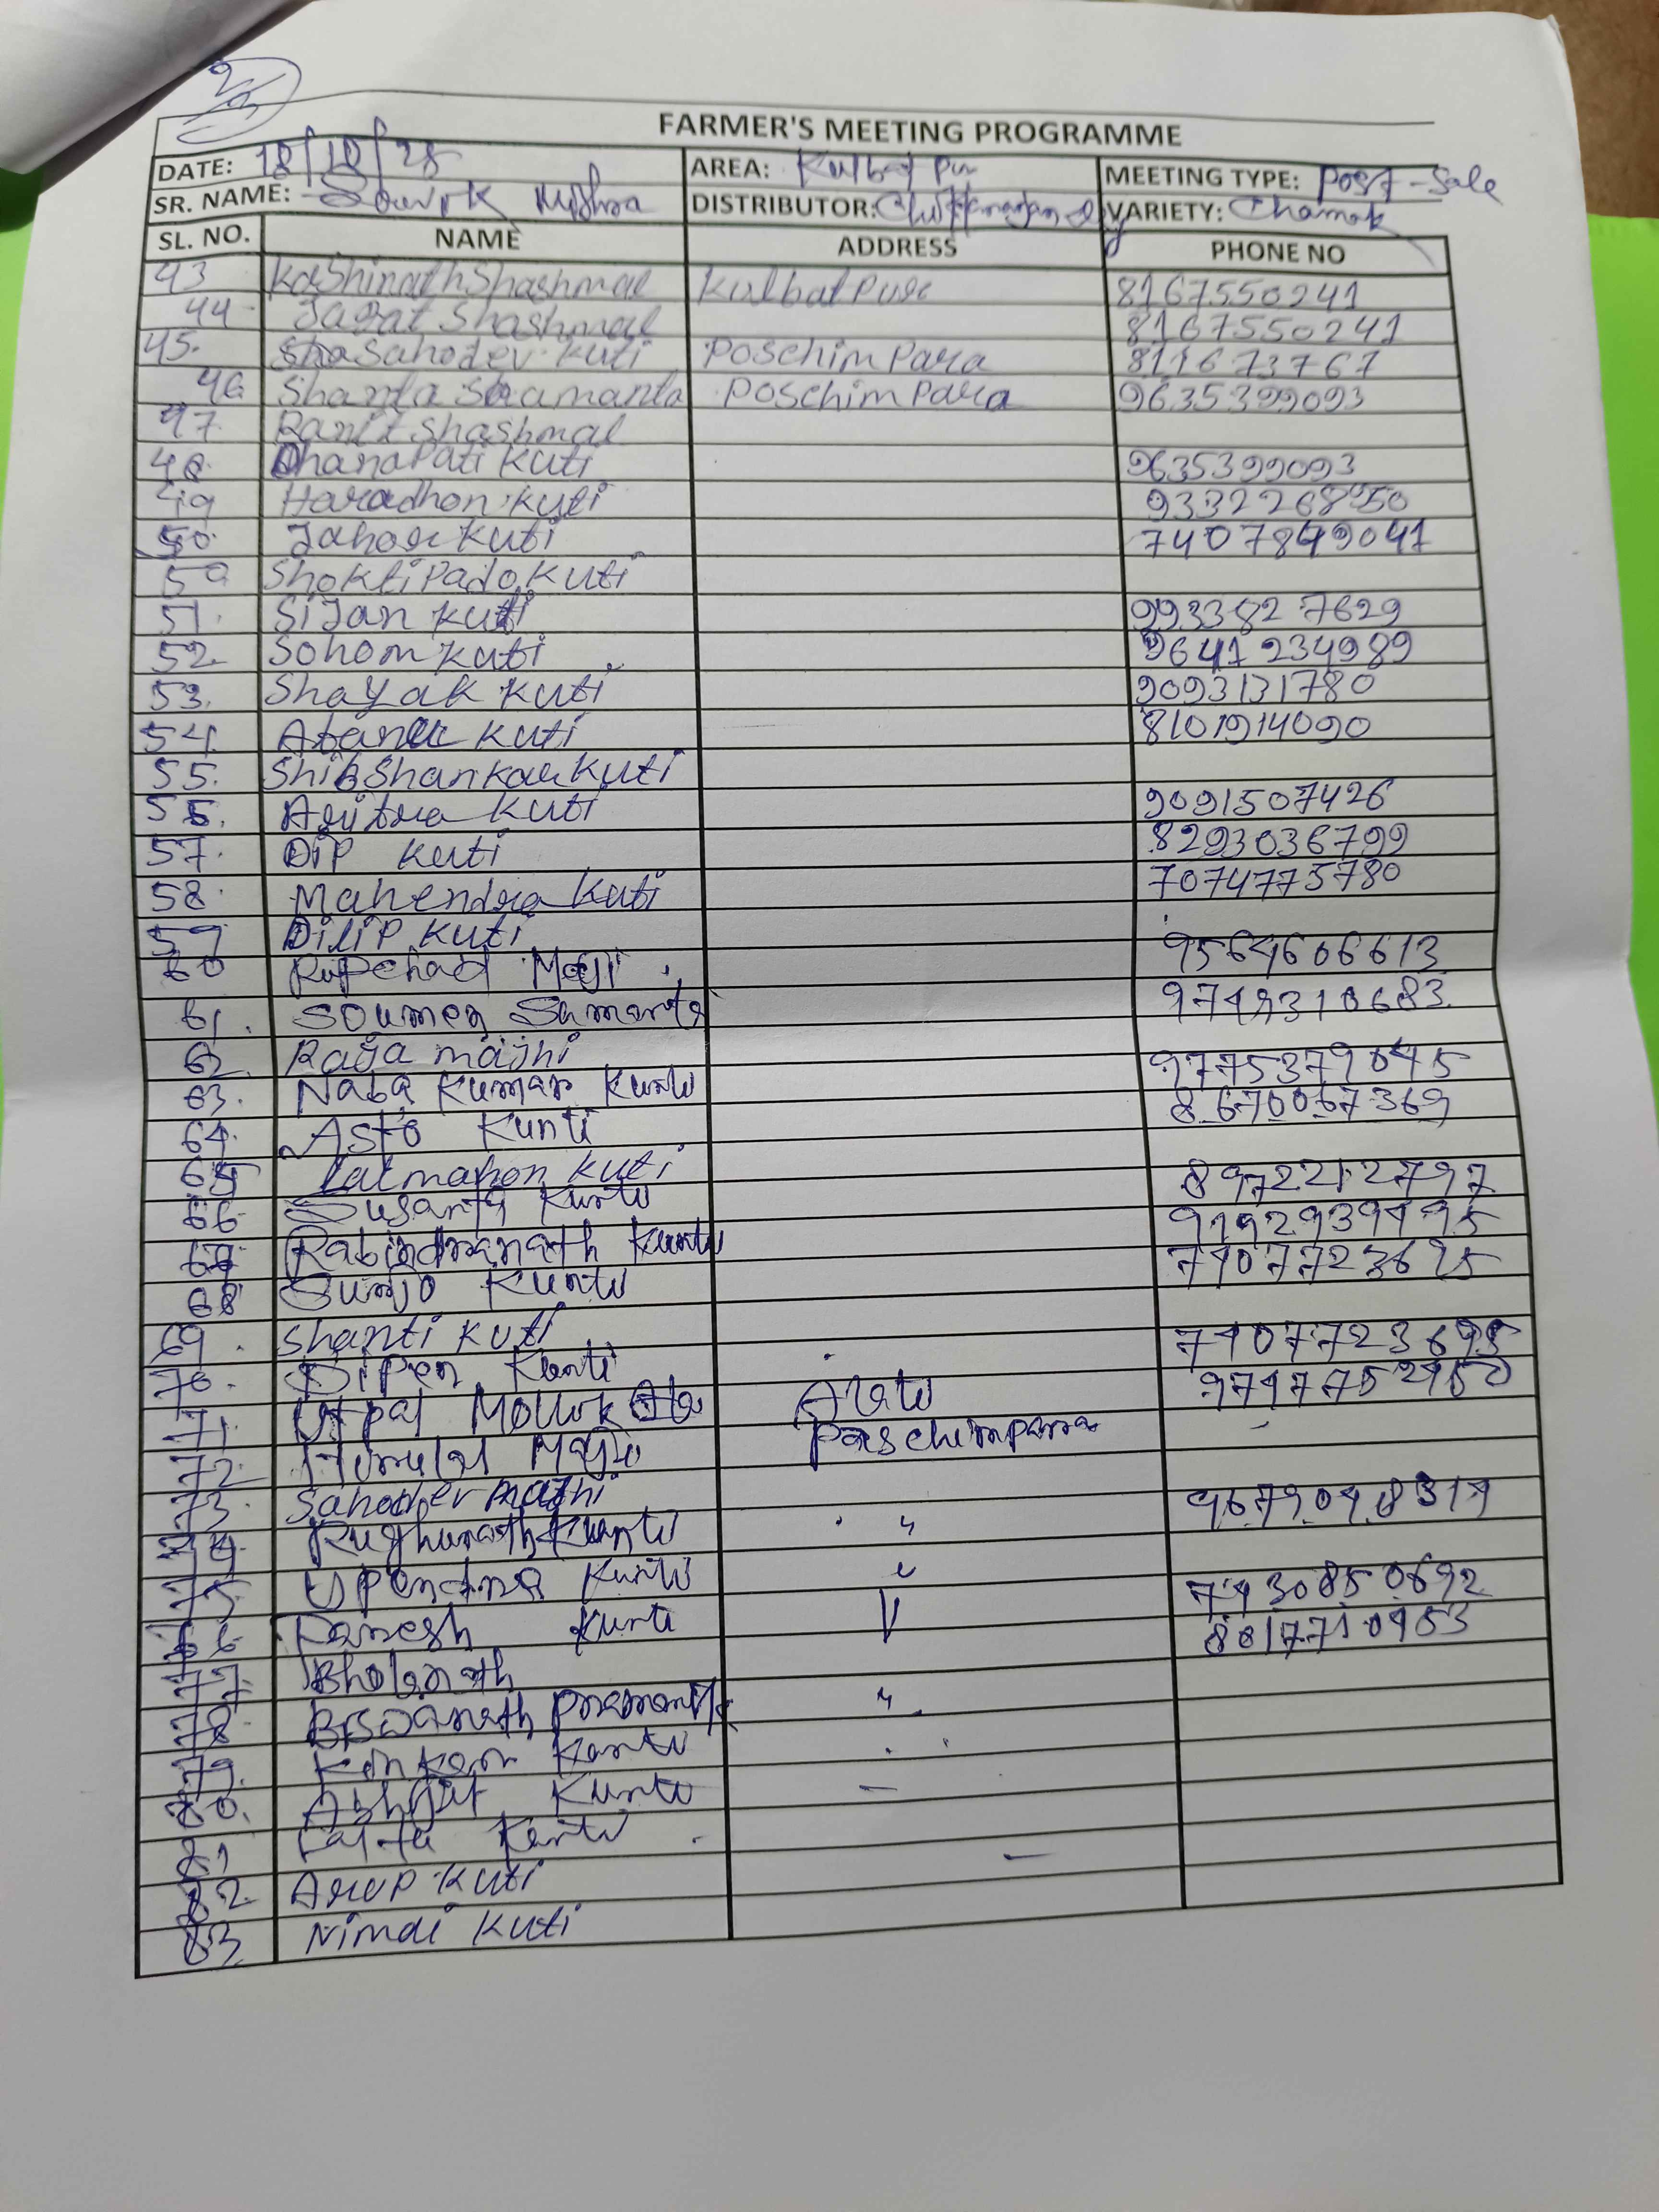 FARMER'S MEETING PROGRAMME
DATE: 18/10/25 AREA: Kulbat Pur MEETING TYPE: Post-Sale
SR. NAME: Souvik Mishra DISTRIBUTOR: VARIETY: Chamak
SL. NO. NAME ADDRESS PHONE NO
43 Kashinath Shashmal Kulbat Pur 8167550241
44 Jagat Shashmal 8167550241
45. Sahodev Kuti Poschim Para 811673767
46 Shanta Samanta Poschim Para 9635399093
47. Ranjit Shashmal
48. Dhanapati Kuti 9635399093
49 Haradhon Kuti 9332268950
50. Jahar Kuti 7407849041
50 Shoktipado Kuti
51. Sijan Kuti 9933827629
52. Sohom Kuti 9641234989
53. Shayak Kuti 9093131780
54. Kuti 8101914090
55. Shib Shankar Kuti
56. Aritra Kuti 9091507426
57. Dip Kuti 8293036799
58. Mahendra Kuti 7074775780
59 Dilip Kuti
60 Rupchad Maji 9564606613
61. Soumen Samanta 9749310683
62. Raja majhi
63. Naba Kumar Kunti 9775379045
64. Asto Kunti 8670067369
65 Lalmahon Kuti
66 Susanta Kunti 8972212797
67 Rabindranath Kunti
68 Kunti 7407723695
69. Shanti Kuti
70. Dipen Kunti 7407723695
71. Utpal Arati 9747752950
72. Maji Paschimpara -
73. Sahodev majhi
74. Raghunath Kunti " 9679048319
75. Upendra Kunti "
76. Ramesh Kunti
77. Bholanath
78. Biswanath Pramanik "
79. Kunti
80. Abhijit Kunti -
81 Kunti
82. Arup Kuti -
83 Nimai Kuti